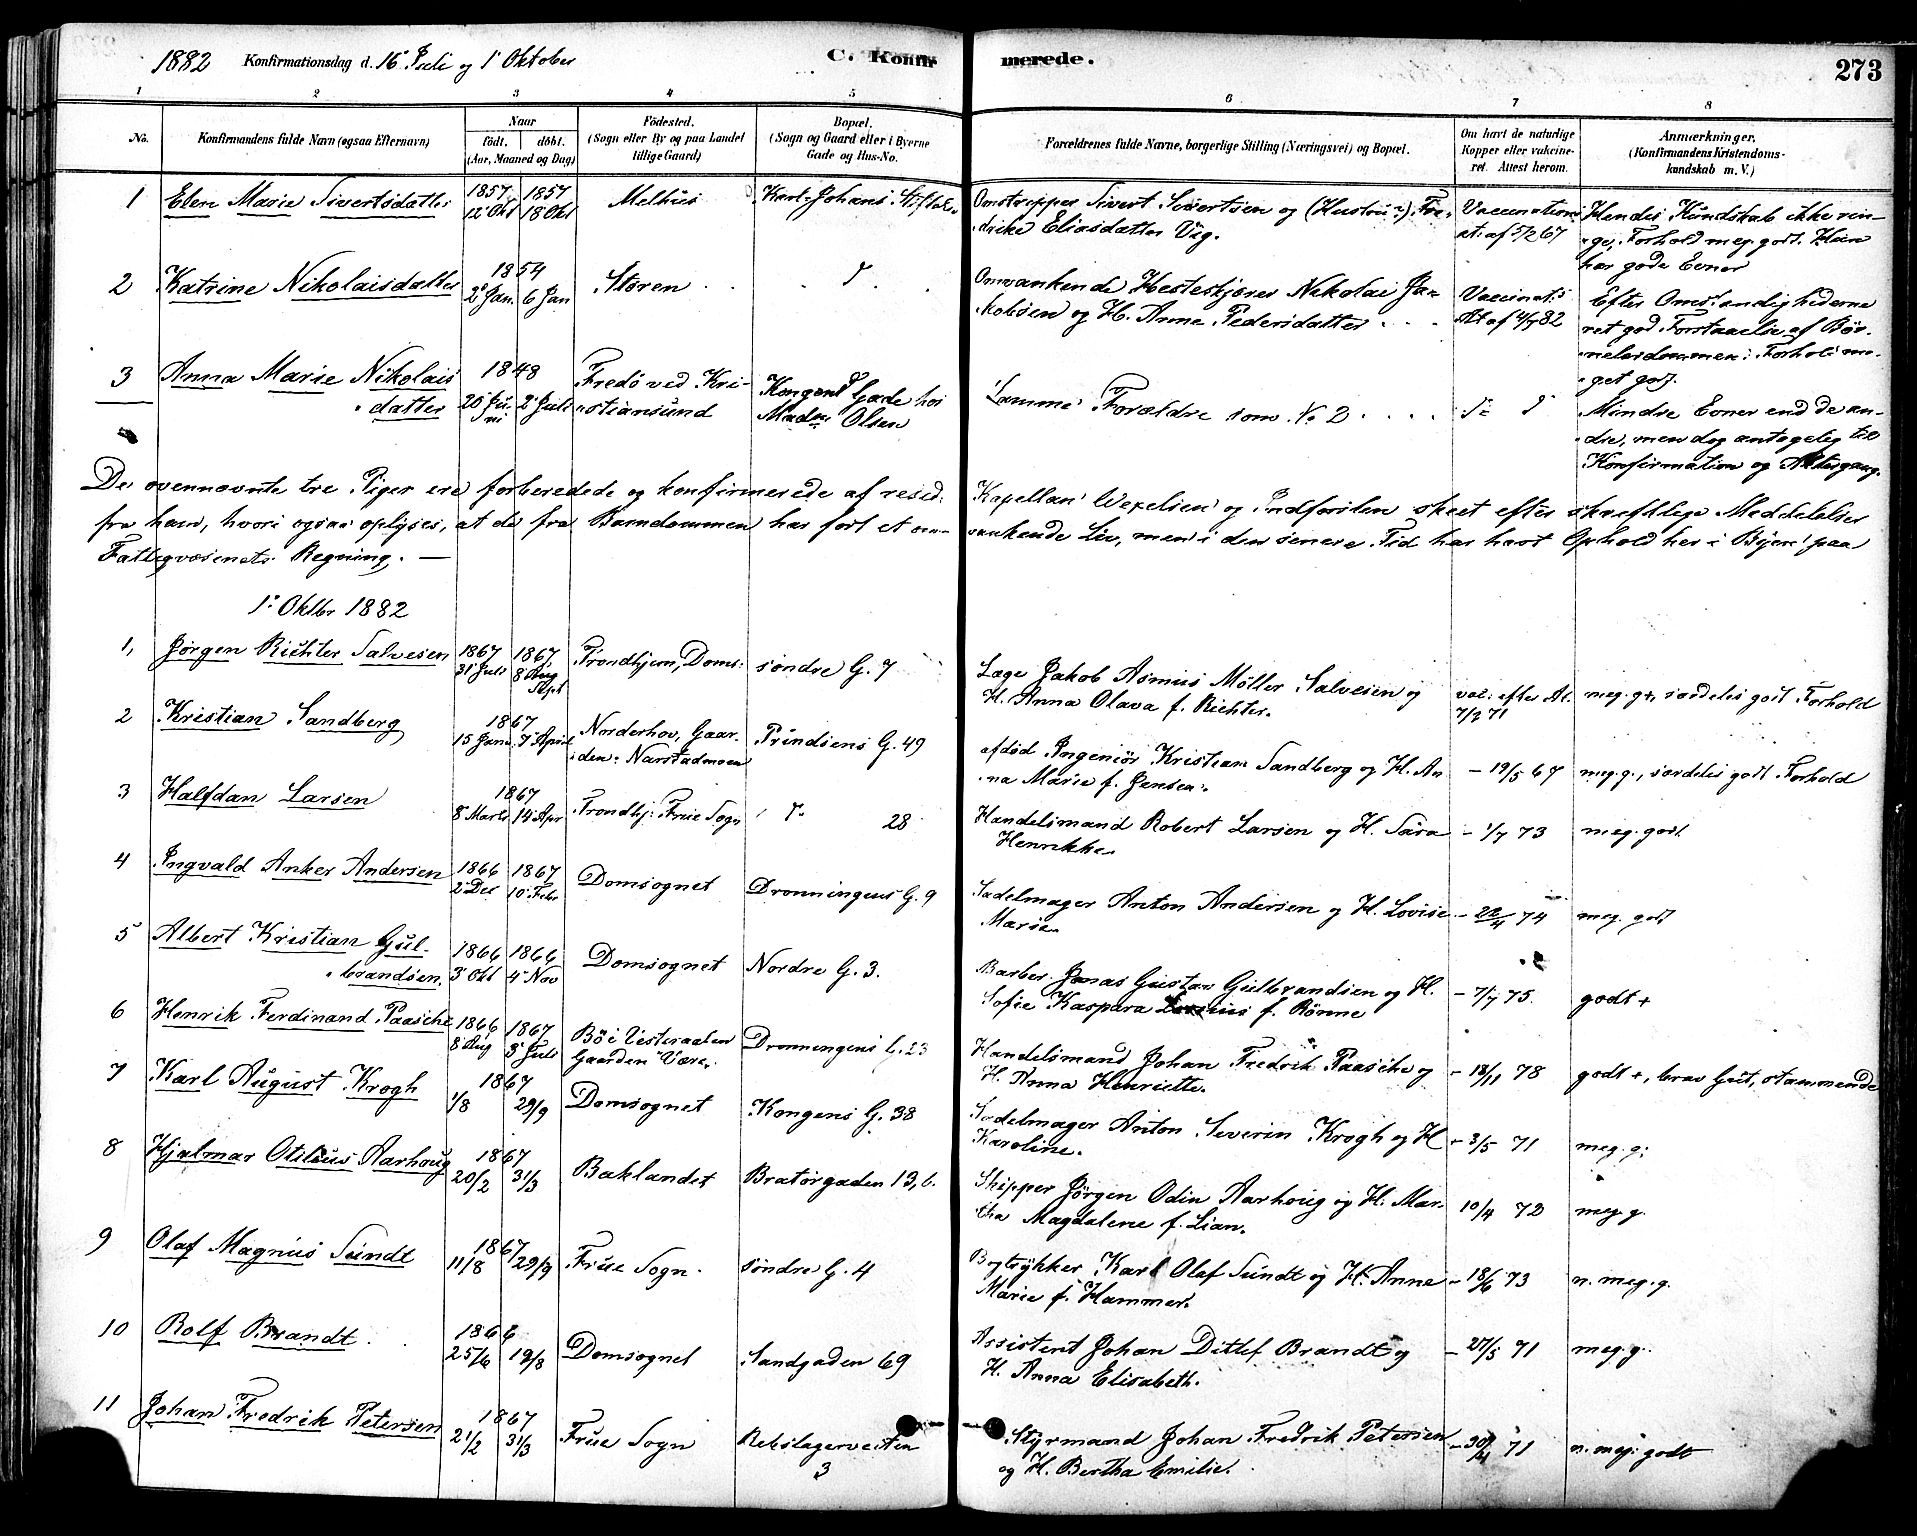 1882 Konfirmationsdag d. 16 Juli og 1 Oktober C. Konfir merede. 273
1 2 3 4 5 6 7 8
No. Konfirmandens fulde Navn (ogsaa Efternavn) Naar født. døbt. (Aar, Maaned og Dag) Fødested. (Sogn eller By og paa Landet tillige Gaard) Bopæl. (Sogn og Gaard eller i Byerne Gade og Hus-No. Forældrenes fulde Navne, borgerlige Stilling (Næringsvei) og Bopæl. Om havt de naturlige Kopper eller vakcineret. Attest herom. Anmærkninger, (Konfirmandens Kristendomskundskab m. V.)
1 Elen Marie Sivertsdatter 1857 12 Okt 1857 18 Okt Melhus Karl-Johans Stiftelse Omstripper Sivert Sivertsen og (Hustru:) Fre-
drike Eliasdatter Vig. Vaccinations at. af 5/2 67 Hendes Kundskab ikke rin-
ge, Forhold meg. godt. Hun
har gode Evner
2 Katrine Nikolaisdatter 1854 2 Jan. 6 Jan Støren Omvankende Hesteskjærer Nikolai Ja-
kobsen og H. Anne Pedersdatter Vaccinat.s At af 4/7 82 Efter Omstændighederne
ret god Forstaaelse af Bør-
nelærdommen; Forhold me-
get godt.
3 Anna Marie Nikolais
datter 1848 20 Juni 2 Juli Fredø ved Kri-
stiansund Kongens Gade hos
Mad. Olsen Samme Forældre som No 2 Mindre Evner end de an-
dre, men dog antagelig til
Konfirmation og Altergang.
De ovennævnte tre Piger ere forberedede og konfirmerede af resid. Kapellan Wexelsen og Indførslen skeet efter skriftlige Meddelelser
fra ham, hvori ogsaa oplyses, at de fra Barndommen har ført et om- vankende Liv, men i den senere Tid har havt Ophold her i Byen paa
Fattigvæsenets Regning. —
1. Oktbr 1882
1, Jørgen Richter Salvesen 1867 31 Juli 1867 8 Sept Trondhjem, Doms: søndre G. 7 Læge Jakob Asmus Møller Salvesen og
H. Anna Olava f. Richter. vac. efter At. 7/2 71 meg. g+, særdeles godt Forhold
2 Kristian Sandberg 1867 15 Jan. 7 April Norderhov, Gaar-
den Narstadmoen Prindsens G. 49 afdød Ingeniør Kristian Sandberg og H. An-
na Marie f. Jensen. – 19/5 67 meg. g., særdeles godt Forhold
3 Halfdan Larsen 1867 8 Marts 14 Apr Trondhj. Frue Sogn 28 Handelsmand Robert Larsen og H. Sara
Henrikke. – 1/7 73 meg. godt
4 Ingvald Anker Andersen 1866 2 Des 1867 10 Febr Domsognet Dronningens G. 9 Sadelmager Anton Andersen og H. Lovise
Marie. – 22/4 74 meg. godt
5 Albert Kristian Gul-
brandsen. 1866 3 Okt 1866 4 Nov Domsognet Nordre G. 3. Barber Jonas Gustav Gulbrandsen og H.
Sofie Kaspara f. Rönne – 7/7 75. godt+
6 Henrik Ferdinand Paasche 1866 8 Aug 1867 3 Juli Bö i Vesteraalen
Gaarden Være. Dronningens G. 23 Handelsmand Johan Fredrik Paasche og
H. Anna Henriette. – 18/11 78 godt +, brav Gut, stammende
7 Karl August Krogh 1867 1/8 29/9 Domsognet Kongens G. 38 Sadelmager Anton Severin Krogh og H
Karoline. – 3/5 71 meg. g.
8 Hjalmar Otilius Aarhoug 1867 20/2 31/3 Baklandet Bratørgaden 13, b. Skipper Jørgen Odin Aarhoug og H. Mar-
tha Magdalene f. Lian. 10/4 72 meg. g.
9 Olaf Magnus Sundt 1867 11/8 29/9 Frue Sogn. søndre G. 4 Bogtrykker Karl Olaf Sundt og H. Anne
Marie f. Hammer. – 18/6 73 n. meg. g.
10 Rolf Brandt. 1866 25/6 19/8 Domsognet Sandgaden 69 Assistent Johan Ditlef Brandt og
H. Anna Elisabeth. – 27/5 71 meg. g.
11 Johan Fredrik Petersen 1867 21/2 31/3 Frue Sogn Rebslagerveiten
3 Styrmand Johan Fredrik Petersen
og H. Bertha Emilie. – 30/4 71 n. meg. godt